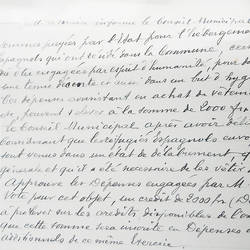 informe le Conseil Municipal
par l'Etat pour l'hébergeme
espagnols qui ont résidé dans la Commune, ces
engagées par esprit d'humanité, pour do
une tenue décente et aussi dans un but d'hyg
dépenses consistant en achat de vêtem
peuvent s'élever à la somme de 2000 fra
Le Conseil Municipal après avoir délib
Considérant que les réfugiés Espagnols
sont venus dans un état de délabrement
générale et qu'il a été nécessaire de les vêtir
Approuve les Dépenses engagées par M
Vote pour cet objet, un crédit de 2000 fr
à prélever sur les crédits disponibles de
que cette somme sera inscrite en Dépenses
additionnels de ce même Exercice